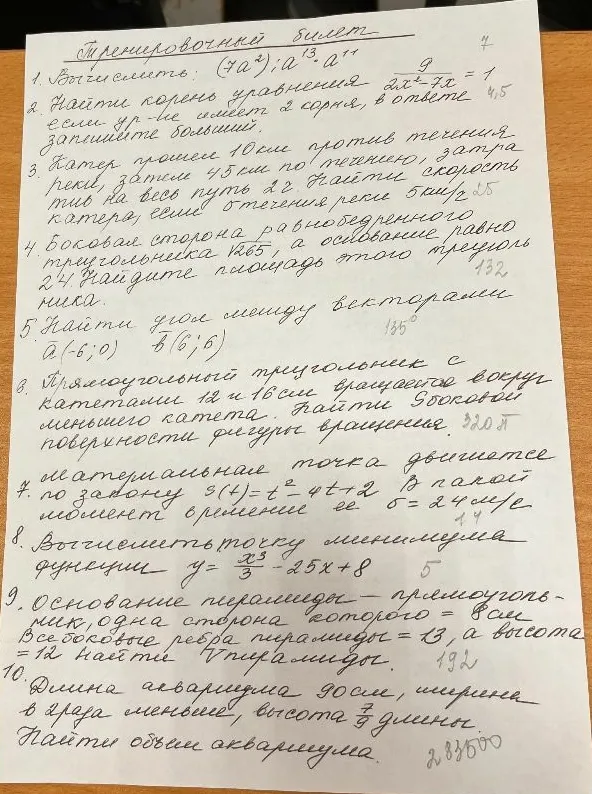 Тренировочный билет
1. Вычислить: (7a²):a¹³·a¹¹ 7
2. Найти корень уравнения 9/(2x²-7x) = 1
если ур-ие имеет 2 корня, в ответе 4,5
запишите больший.
3. Катер прошел 10 км против течения
реки, затем 45 км по течению, затра
тив на весь путь 2 ч. Найти скорость
катера, если σ течения реки 5 км/ч 25
4. Боковая сторона равнобедренного
треугольника √265, а основание равно
24 Найдите площадь этого треуголь
ника. 132
5. Найти угол между векторами
a̅(-6;0) b̅(6;6) 135°
6. Прямоугольный треугольник с
катетами 12 и 16 см вращается вокруг
меньшего катета. Найти S боковой
поверхности фигуры вращения. 320π
7. Материальная точка двигается
по закону S(t)=t²-4t+2 В какой
момент времени ее σ = 24 м/с
14
8. Вычислить точку минимума
функции y= x³/3 - 25x+8 5
9. Основание пирамиды – прямоуголь-
ник, одна сторона которого = 8 см
Все боковые ребра пирамиды = 13, а высота
= 12 Найти V пирамиды. 192
10. Длина аквариума 90 см, ширина
в 2 раза меньше, высота 7/9 длины.
Найти объем аквариума. 283500